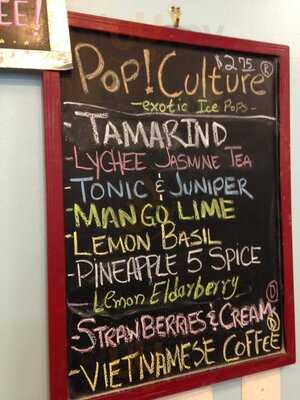 EE!
Pop! Culture ®
$2.75
-exotic Ice Pops-
-TAMARIND
-LYCHEE JASMINE TEA
-TONIC & JUNIPER
-MANGO LIME
-LEMON BASIL
-PINEAPPLE 5 SPICE
-Lemon Eldarberry
-STRAWBERRIES & CREAM
-VIETNAMESE COFFEE